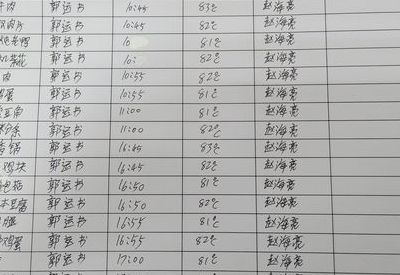 牛肉 郭运书 10:45 83℃ 赵海亮
郭运书 10:45 82℃ 赵海亮
郭运书 10 81℃ 赵海亮
菜花 郭运书 10: 82℃ 赵海亮
肉 郭运书 10:55 82℃ 赵海亮
鸡蛋 郭运书 10:55 81℃ 赵海亮
豆角 郭运书 11:00 81℃ 赵海亮
郭运书 11:00 82℃ 赵海亮
香锅 郭运书 16:45 83℃ 赵海亮
鸡块 郭运书 16:45 82℃ 赵海亮
郭运书 16:50 81℃ 赵海亮
本豆腐 郭运书 16:50 82℃ 赵海亮
郭运书 16:55 81℃ 赵海亮
鸡蛋 郭运书 16:55 82℃ 赵海亮
郭运书 17:00 81℃ 赵海亮